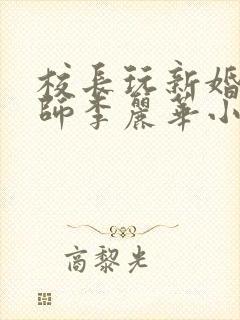 校長玩新婚
師李麗華小
高黎光